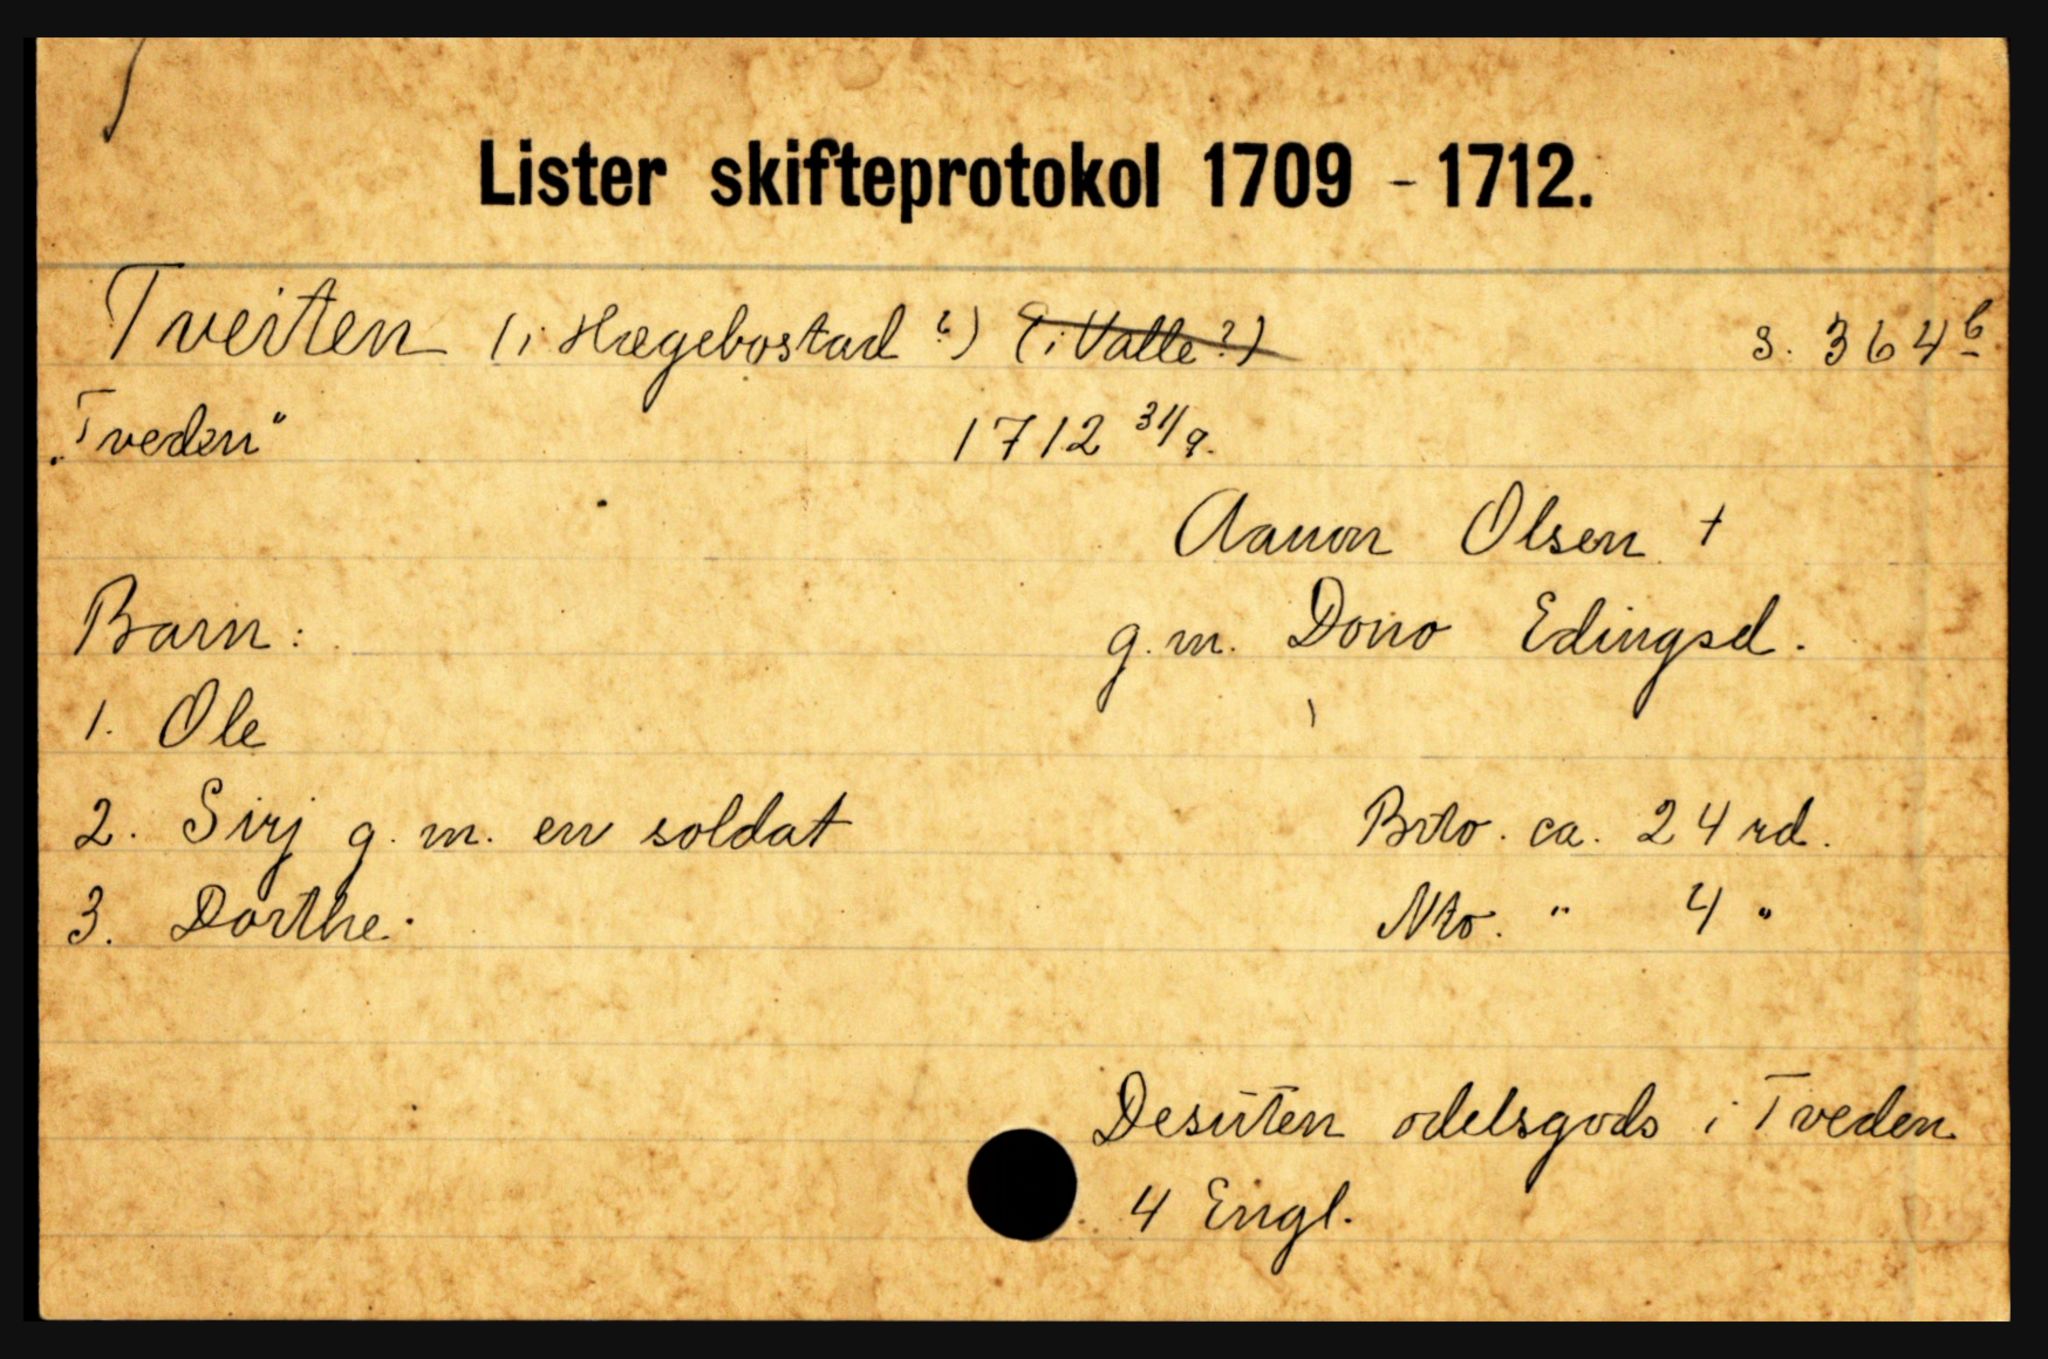 Lister skifteprotokol 1709 - 1712.
Tveiten (i Hægebostad?) (i Valle?) s. 364b
„Tveden“ 1712 31/9.
Aanon Olsen +
Barn: g.m. Dorro Edingsd.
1. Ole
2. Sirj g. m. en soldat Brto. ca. 24 rd.
3. Dorthe. Nto. " 4 "
Desuten odelsgods i Tveden
4 Engl.